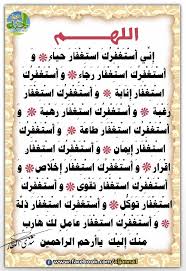 اللهم
إنِّي أَستَغفِرُكَ استِغفَارَ حَياءٍ و
أَستَغفِرُكَ استِغفَارَ رَجَاءٍ و أَستَغفِرُكَ
استِغفَارَ إِنابَةٍ و أَستَغفِرُكَ استِغفَارَ
رَغبَةٍ و أَستَغفِرُكَ استِغفَارَ رَهبَةٍ و
أَستَغفِرُكَ استِغفَارَ طَاعَةٍ و أَستَغفِرُكَ
استِغفَارَ إيمَانٍ و أَستَغفِرُكَ استِغفَارَ
إقرَارٍ و أَستَغفِرُكَ استِغفَارَ إخلَاصٍ و
أَستَغفِرُكَ استِغفَارَ تَقوَى و أَستَغفِرُكَ
استِغفَارَ تَوكُّلٍ و أَستَغفِرُكَ استِغفَارَ ذِلَّةٍ
و أَستَغفِرُكَ استِغفَارَ عَامِلٍ لَكَ هَارِبٍ
مِنكَ إلَيكَ يا أرحم الراحمين
www.facebook.com/aljannat